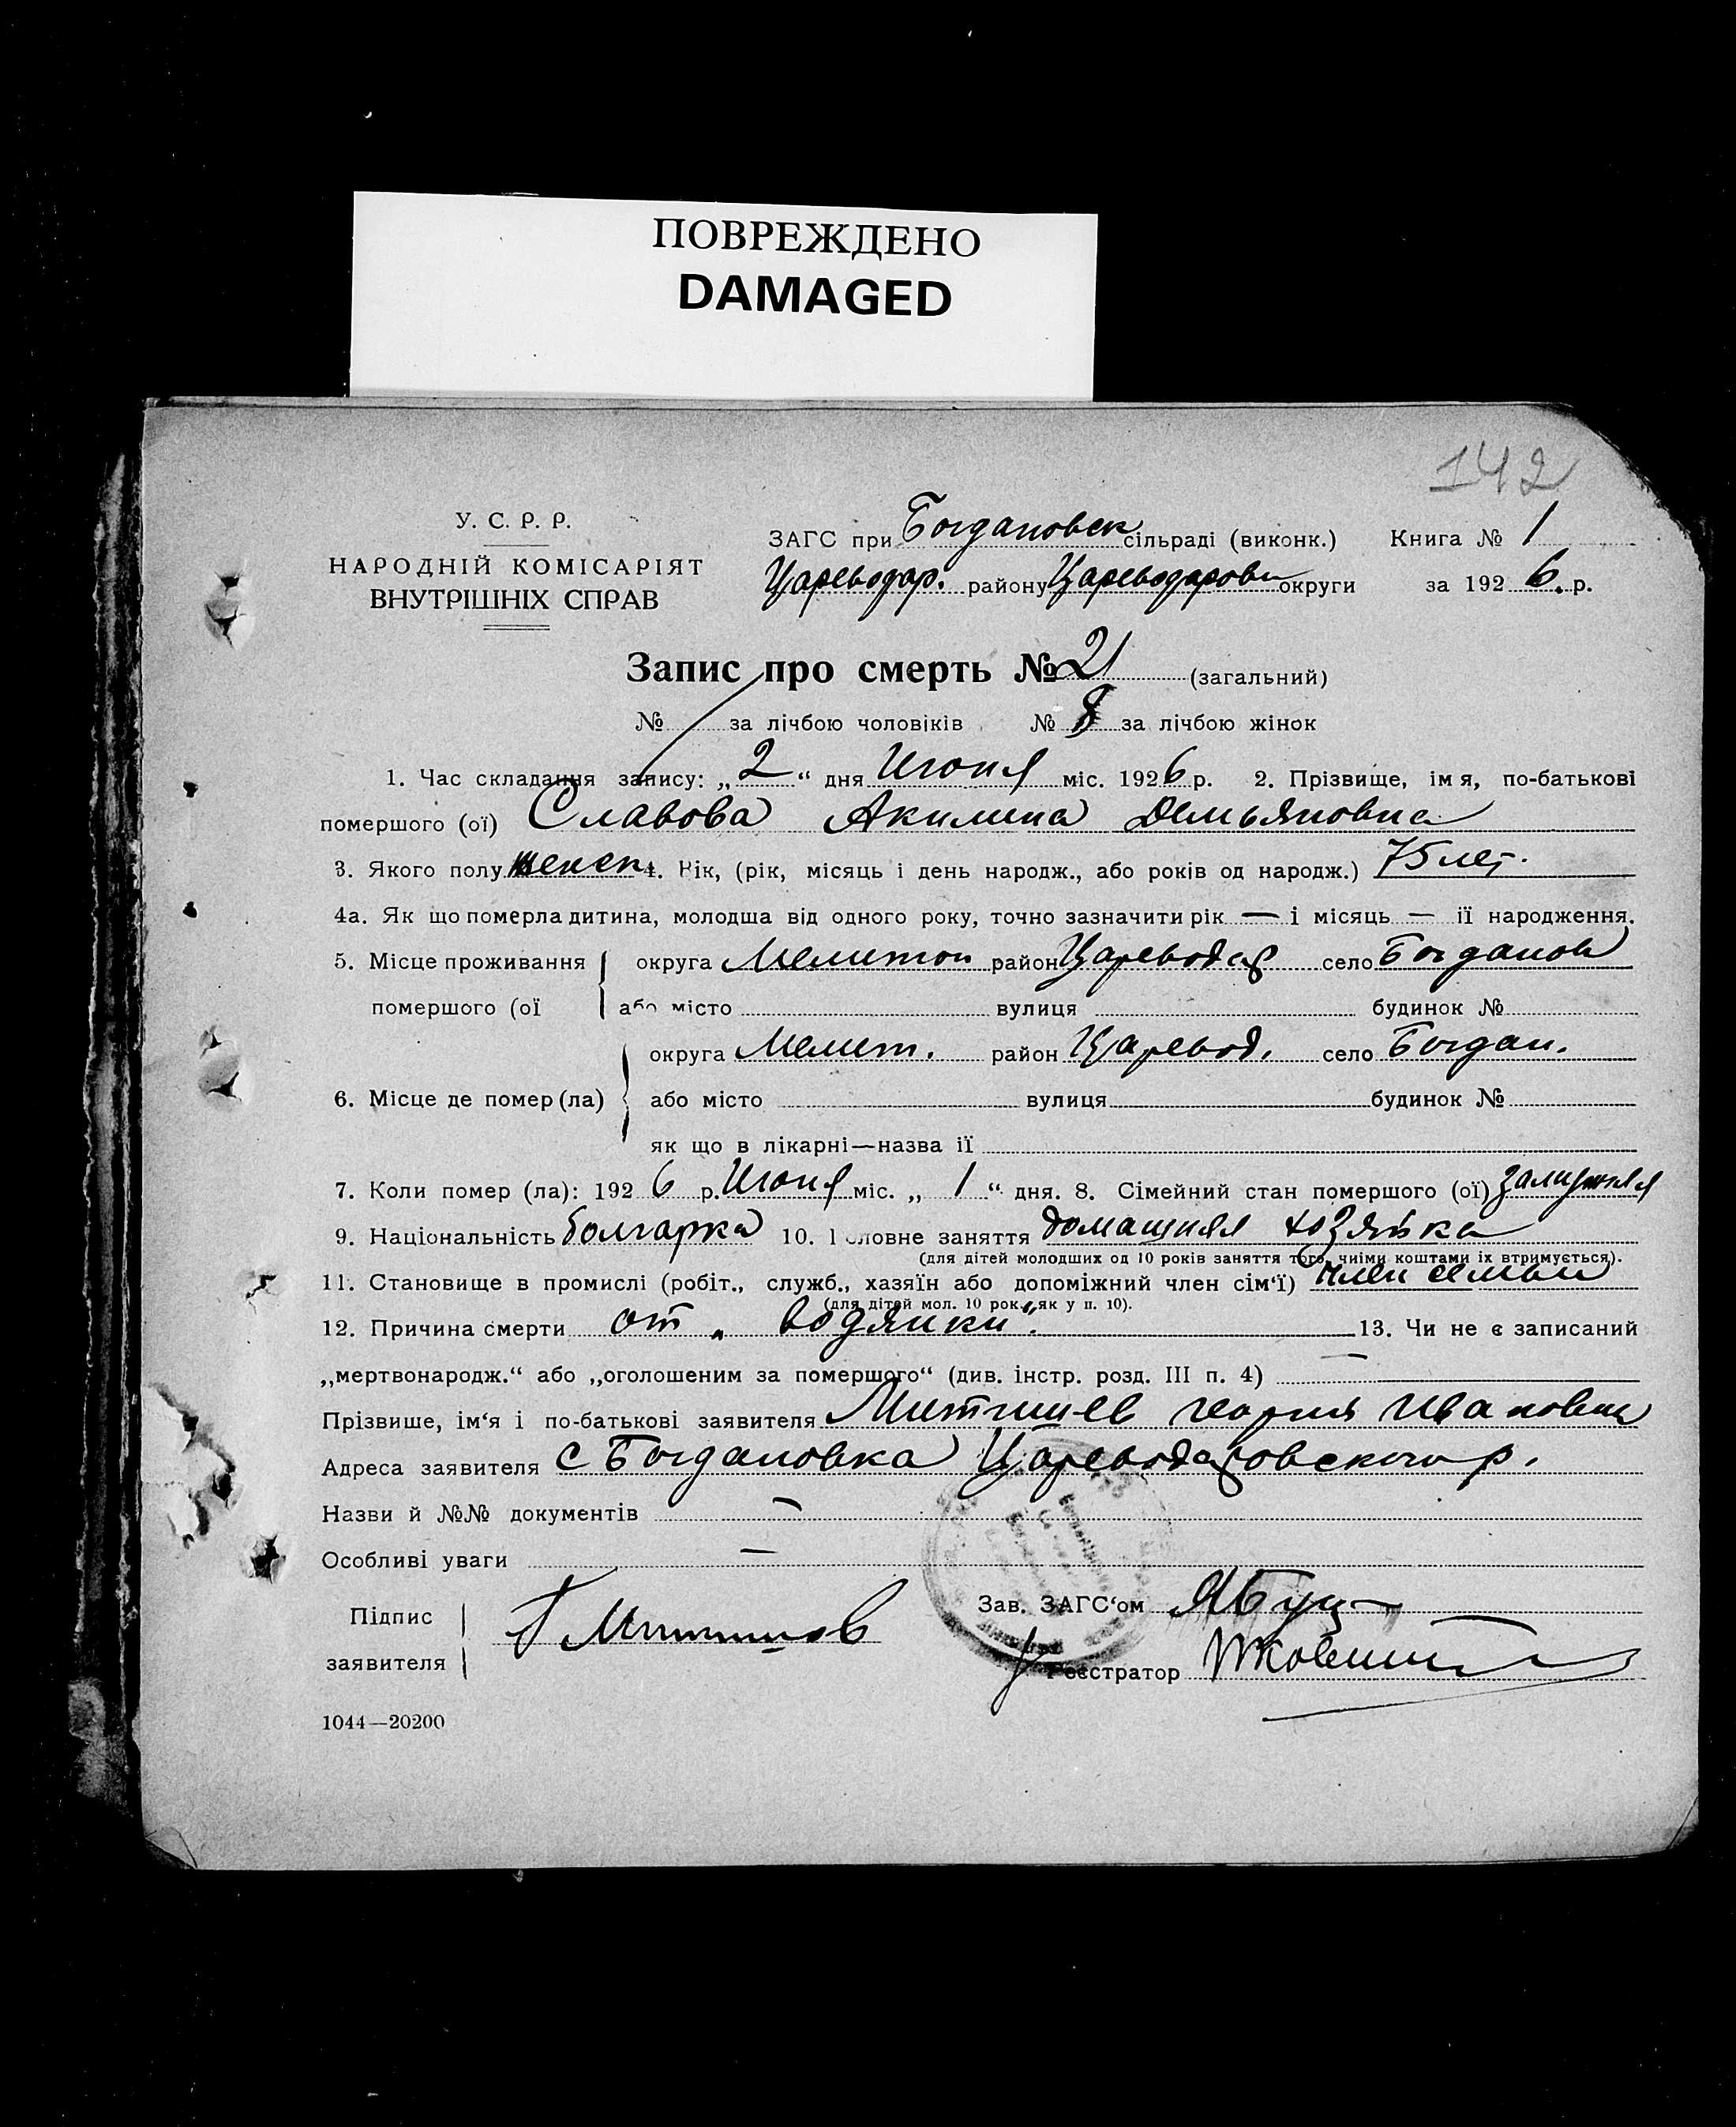 ПОВРЕЖДЕНО
DAMAGED
142
У. С. Р. Р.
НАРОДНІЙ КОМІСАРІЯТ
ВНУТРІШНІХ СПРАВ
ЗАГС при Богдановск сільраді (виконк.) Книга № 1
Цареводар. району Цареводарови округи за 1926. р.
Запис про смерть № 21 (загальний)
№ за лічбою чоловіків № 8 за лічбою жінок
1. Час складання запису: „2“ дня Июня міс. 1926 р. 2. Прізвище, імя, по-батькові
помершого (ої) Славова Акилина Демьяновна
3. Якого полу женск 4. Вік, (рік, місяць і день народж., або років од народж.) 75 лет.
4а. Як що померла дитина, молодша від одного року, точно зазначити рік — і місяць — її народження.
5. Місце проживання округа Мелитоп район Цареводар село Богданов
помершого (ої або місто вулиця будинок №
округа Мелит. район Царевод. село Богдан.
6. Місце де помер (ла) або місто вулиця будинок №
як що в лікарні—назва її
7. Коли помер (ла): 1926 р. Июня міс. „1“ дня. 8. Сімейний стан помершого (ої) замужняя
9. Національність болгарка 10. Головне заняття домашняя хозяйка
(для дітей молодших од 10 років заняття того, чиїми коштами їх втримується).
11. Становище в промислі (робіт., служб., хазяїн або допоміжний член сім‘ї) член семьи
(для дітей мол. 10 рок., як у п. 10).
12. Причина смерти от „водянки“. 13. Чи не є записаний
„мертвонародж.“ або „оголошеним за помершого“ (див. інстр. розд. III п. 4) —
Прізвише, ім‘я і по-батькові заявителя Иванович
Адреса заявителя с Богдановка Цареводаровского р.
Назви й №№ документів —
Особливі уваги —
Підпис
заявителя
Зав. ЗАГС‘ом
Реєстратор
1044—20200